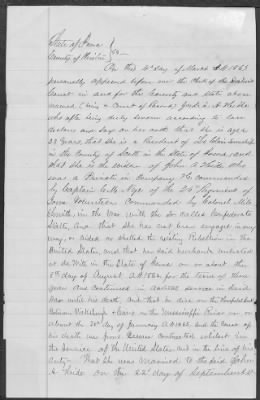 State of Iowa
County of Clinton } SS
On this 4th day of March A.D. 1863
personally appeared before me the Clerk of the District
Court in and for the County and State above
named (being a Court of Record)
who after being duly sworn according to law
declares and says on her oath that she is aged
23 Years, that she is a resident of
in the County of Scott in the State of Iowa, and
that she is the widow of John A
was a Private in Company commanded
by Captain of the 26 Regiment of
Iowa Volunteers Commanded by Colonel Milo
Smith, in the War with the so called Confederate
States, and that she has not been engaged in any
way, or aided or abetted the existing Rebellion in the
United States, and that her said husband enlisted
at De Witt in the State of Iowa on or about the
5th day of August A.D. 1862, for the term of three
years and continued in actual service in said
War until his death, and that he died on the
Steamer on the Mississippi River on or
about the 20th day of January A.D. 1863, and the cause of
his death was from disease contracted whilst in
the service of the United States and in the line of his
duty. That she was married to the said John
A on the 22d day of September